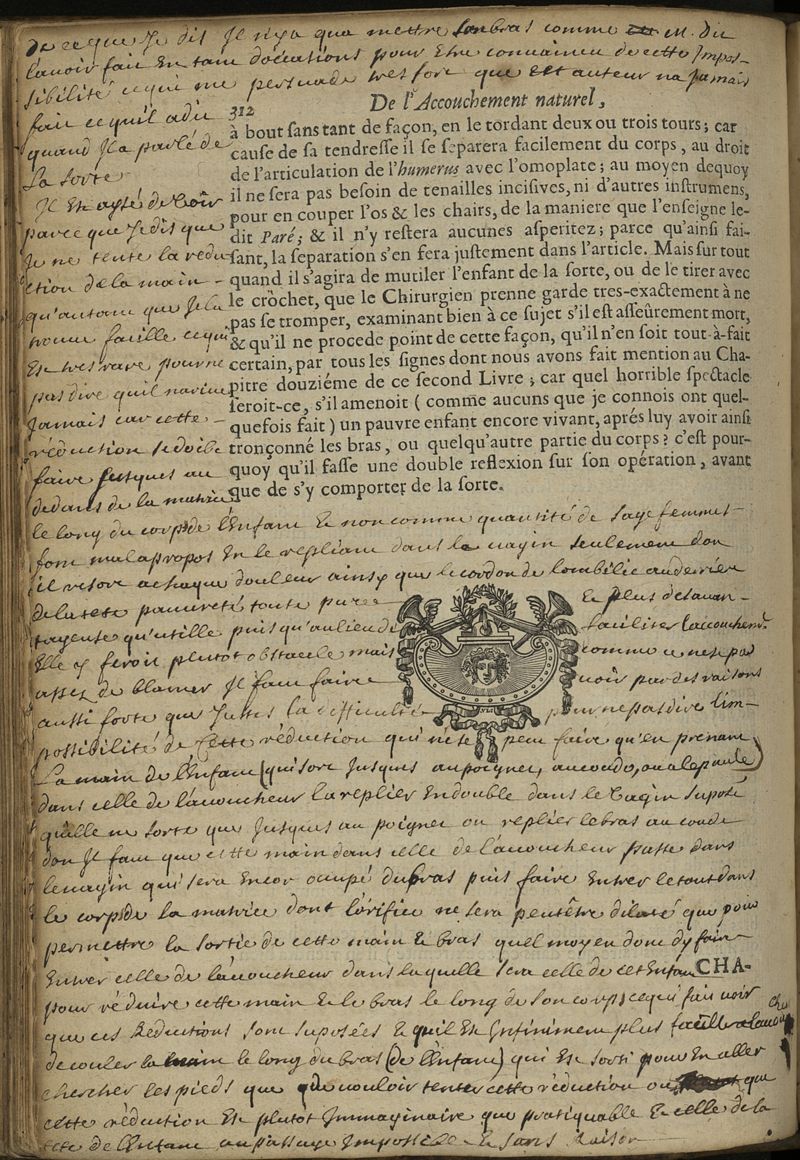 de ce que Je dis Il n'y a qua mettre son bras comme M. Du
l'avoir fait En tant d'ocations pour Etre convaincu de cette Impos-
sibilité ce qui me persuade tres fort que cet auteur na Jamais
fait ce qu'il a dit
quand Il a parlé de
La sorte
Il Est aysé de Voir
parce que Je dis que
Je ne tente la redu
ction de la main -
qu'autant que Je la
trouve facille ce qui
Est tres rare pour ne
pas dire qu'il narive
Jamais car cette -
réduction se doibt
faire Jusques au
dedans de la matrice
312
De l'Accouchement naturel,
à bout sans tant de façon, en le tordant deux ou trois tours; car
cause de sa tendresse il se separera facilement du corps, au droit
de l'articulation de l'humerus avec l'omoplate; au moyen dequoy
il ne sera pas besoin de tenailles incisives, ni d'autres instrumens,
pour en couper l'os & les chairs, de la maniere que l'enseigne le-
dit Paré; & il n'y restera aucunes asperitez; parce qu'ainsi fai-
sant, la separation s'en fera justement dans l'article. Mais sur tout
quand il s'agira de mutiler l'enfant de la sorte, ou de le tirer avec
le crochet, que le Chirurgien prenne garde tres-exactement à ne
pas se tromper, examinant bien à ce sujet s'il est asseûrement mort,
& qu'il ne procede point de cette façon, qu'il n'en soit tout-à-fait
certain, par tous les signes dont nous avons fait mention au Cha-
pitre douziéme de ce second Livre; car quel horrible spectacle
seroit-ce, s'il amenoit ( comme aucuns que je connois ont quel-
quefois fait ) un pauvre enfant encore vivant, aprés luy avoir ainsi
tronçonné les bras, ou quelqu'autre partie du corps? c'est pour-
quoy qu'il fasse une double reflexion sur son opération, avant
que de s'y comporter de la sorte.
le long du corps de l'Enfant & non comme quantité de sage femmes -
font mal apropos En le repliant dans le vagin seulement don
il resort a chaque douleur ainsy que le cordon de lombilic au derriere
de la tete pauvreté toute pure & plus desavan-
tageuse qu'utille puis qu'au lieu de faciliter l'accouchemt
Elle y feroit plutot obstacle mais comme ce n'est pas
assez de blamer Il faut faire voir par des raisons
aussi forte que Justes la difficulté pour ne pas dire l'im-
possibilité de Cette réduction qui ne se peut faire qu'en prenant
La main de l'Enfant (qui sort Jusques au poignet, au coude, ou a lepaule)
dans celle de l'acoucheur la replier En double dans le Vagin suposé
qu'elle ne sorte que Jusques au poignet ou replier le bras au coude
don Il faut que cette main dans celle de l'acoucheur passe dans
le vagin qui sera Encor ocupé du bras puis faire Entrer le tout dans
le corps de la matrice dont l'orifice ne sera peutêtre dilaté que pour
permettre la sortie de cette main & bras quel moyen donc d'y faire
Entrer celle de l'acoucheur dans laquelle sera celle de cet Enfant
CHA-
pour réduire cette main & le bras le long de son corps ce qui fait voir
que ces Reductions sont suposées & quil Est Infiniment plus facille a l'acoucheur
de couler la main le long du bras (de l'Enfant) qui Est sorti pour En aller
chercher les pieds que vouloir tenter cette réduction ou que
cette réduction Est plutot Immaginaire que pratiquable & celle de la
tete de l'Enfant au passage Impossible & sans Raison